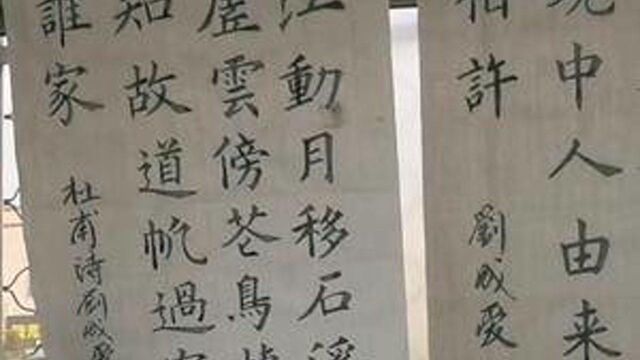 中人由来
相許
劉成爱
江動月移石溪
虛雲傍花鳥
知故道帆過
誰家
杜甫诗劉成爱